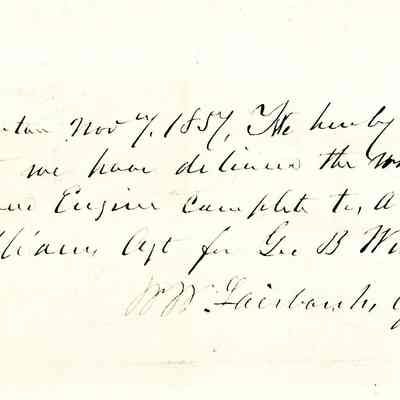 nton Nov 7, 1857, We hereby
we have delivered the
Engine complete to, A
lliams Agt for Geo B Wi
W W. Fairbanks